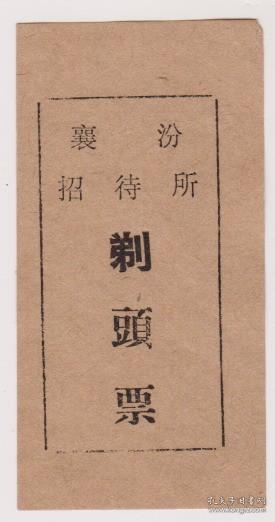 襄汾
招待所
剃
頭
票
孔夫子旧书网